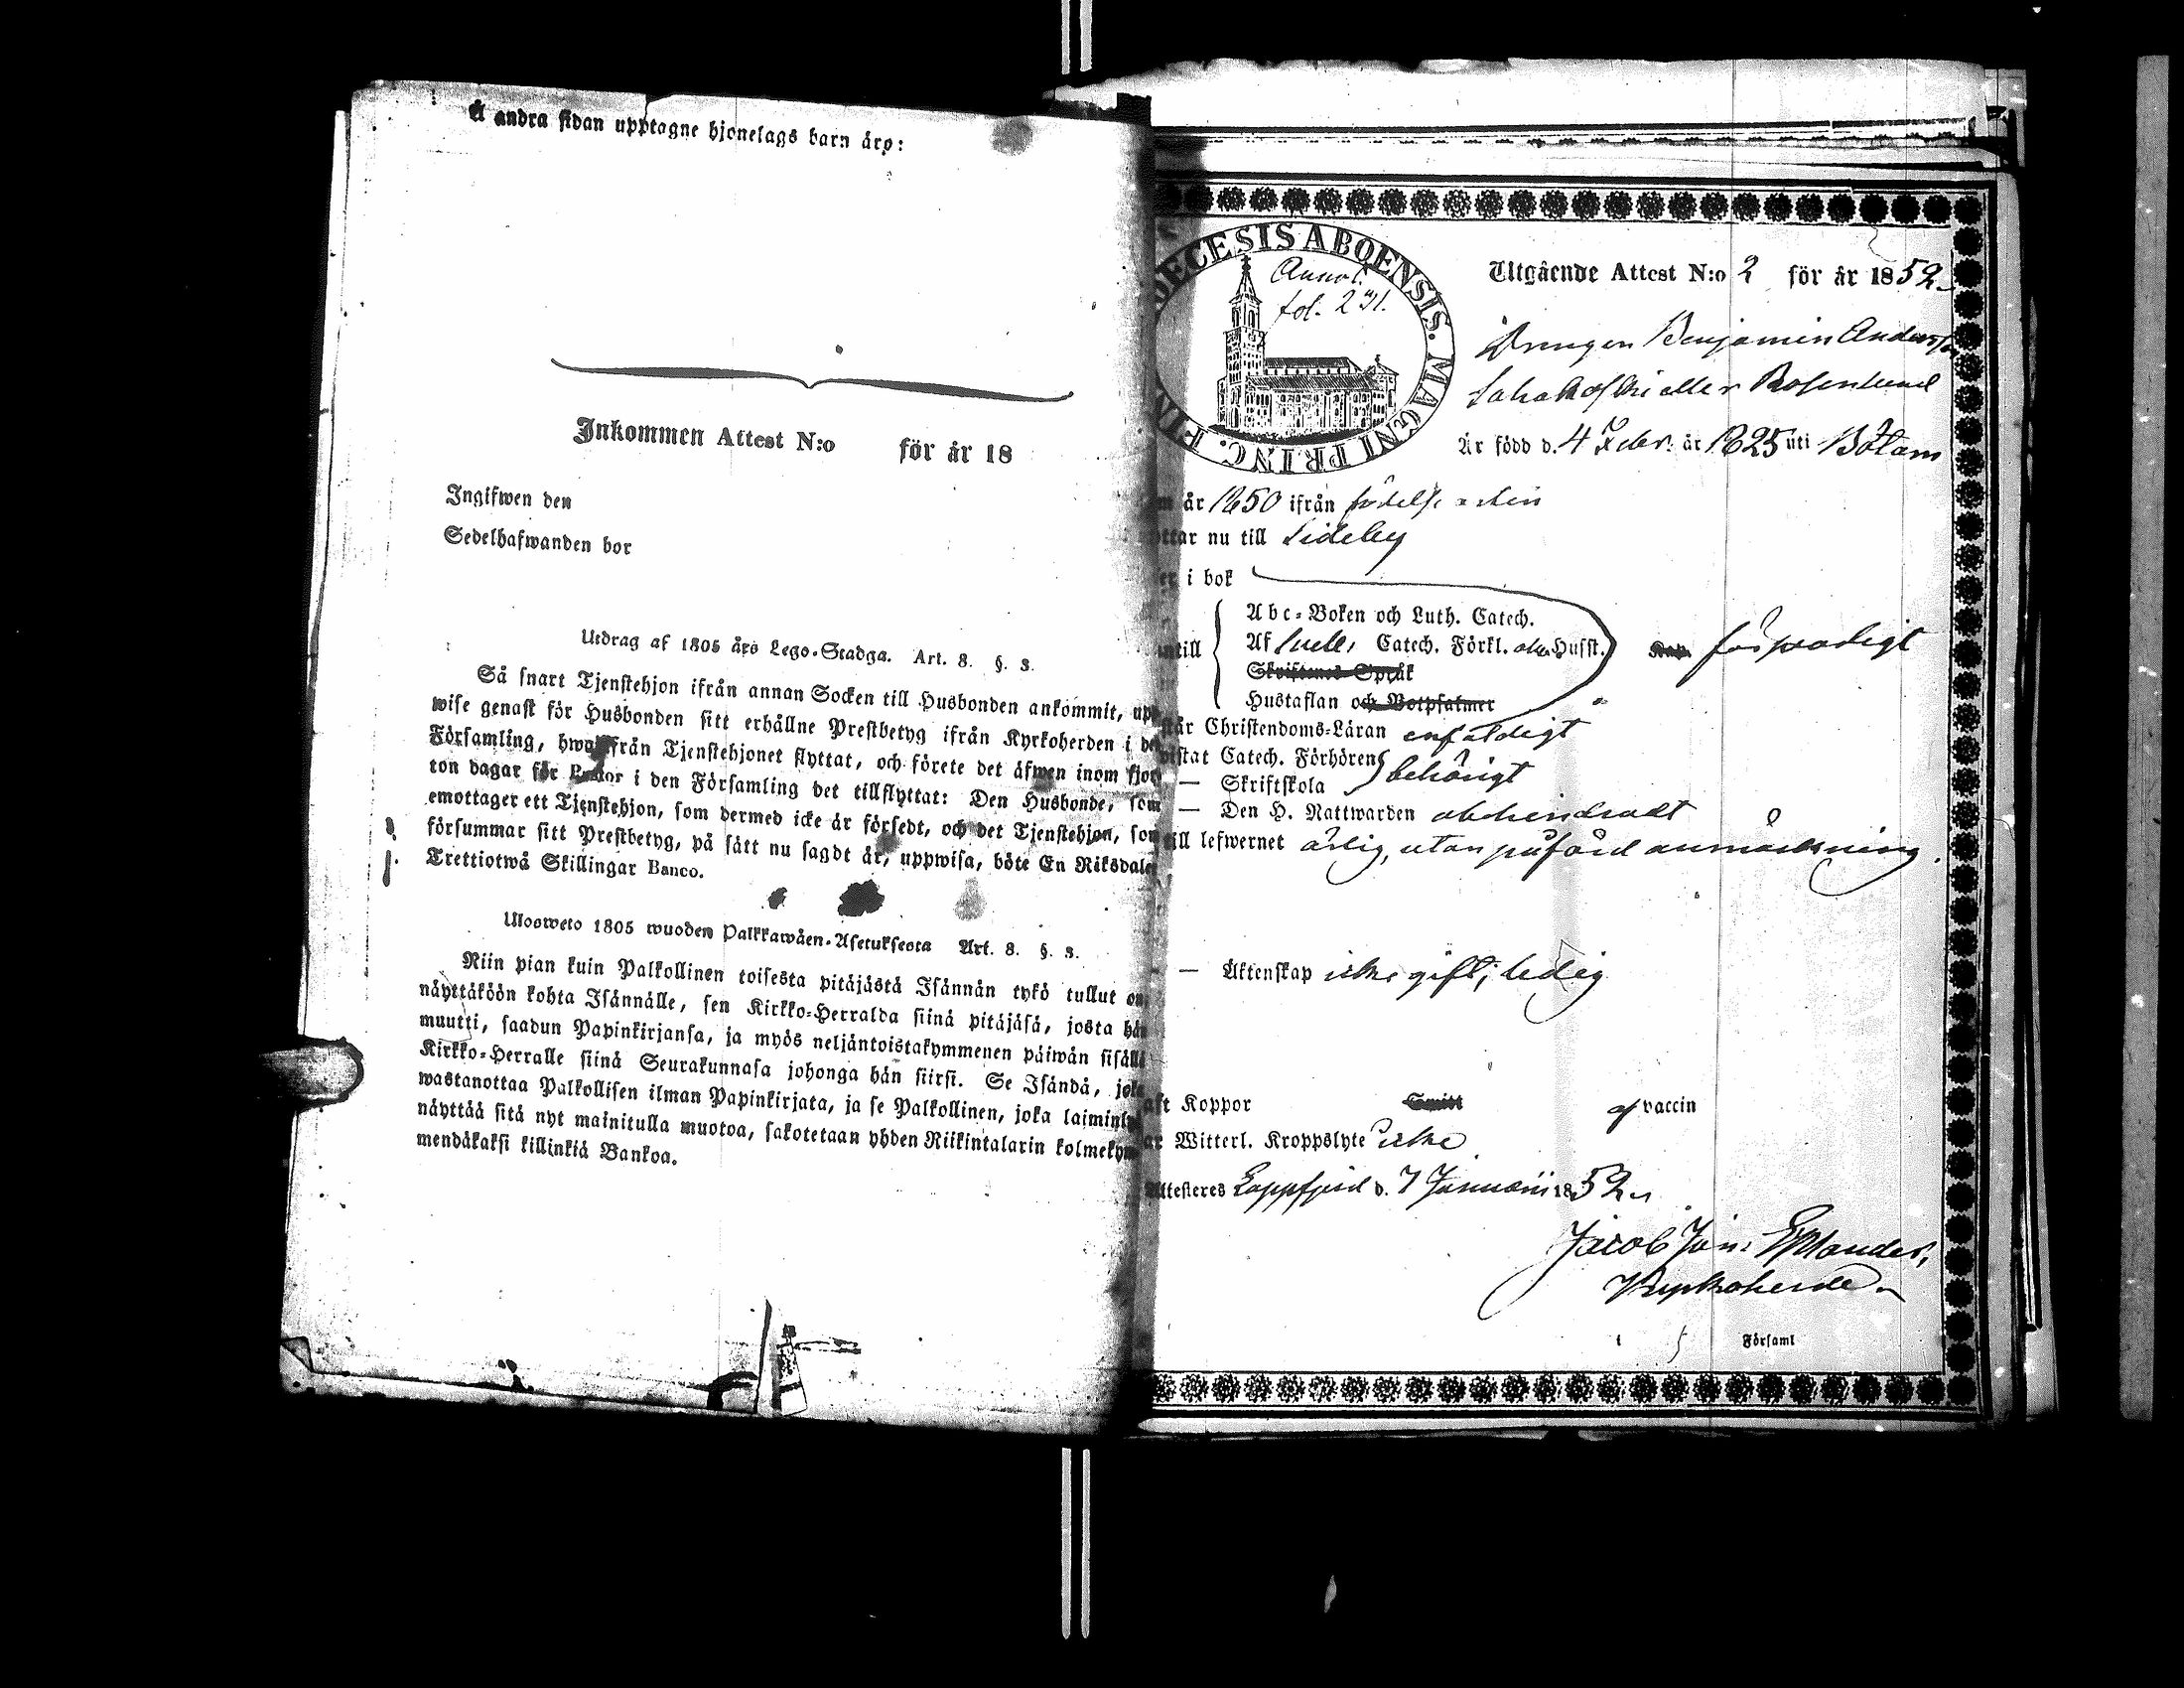 Å andra sidan upptagne hjonelags barn äro:
Inkommen Attest N:o för år 18
Ingifwen den
Sedelhafwanden bor
Utdrag af 1805 års Lego-Stadga. Art. 8. §. 3.
Så snart Tjenstehjon ifrån annan Socken till Husbonden ankommit, upp
wise genast för Husbonden sitt erhållne Prestbetyg ifrån Kyrkoherden i den
Församling, hwarifrån Tjenstehjonet flyttat, och förete det äfwen inom fjor
ton dagar för Pastor i den Församling det tillflyttat: Den Husbonde, som
emottager ett Tjenstehjon, som dermed icke är försedt, och det Tjenstehjon, som
försummar sitt Prestbetyg, på sätt nu sagdt är, uppwisa, böte En Riksdaler
Trettiotwå Skillingar Banco.
Ulosweto 1805 wuoden Palkkawäen-Asetuksesta Art. 8. §. 3.
Niin pian kuin Palkollinen toisesta pitäjästä Isännän tykö tullut on
näyttäköön kohta Isännälle, sen Kirkko-Herralda siinä pitäjäsä, josta hän
muutti, saadun Papinkirjansa, ja myös neljäntoistakymmenen päiwän sisällä
Kirkko-Herralle siinä Seurakunnasa johonga hän siirsi. Se Isändä, joka
wastanottaa Palkollisen ilman Papinkirjata, ja se Palkollinen, joka laiminly
näyttää sitä nyt mainitulla muotoa, sakotetaan yhden Riikintalarin kolmekym
mendäkaksi killinkiä Bankoa.
DECESIS ABOENSIS. MAGNI PRINC. FIN
Annot.
fol. 231.
Utgående Attest N:o 2 för år 1852
Drengen Benjamin Andersson
eller Rosenlund
Är född d. 4 Febr. år 1825 uti Bötom
år 1850 ifrån födelseorten
nu till Sideby
i bok
Abc-Boken och Luth. Catech.
Af Catech. Förkl. Husst.
Skriftenes Språk
Hustaflan och Botpsalmer
försvarligt
Christendoms-Läran enfaldigt
Catech. Förhören
— Skriftskola behörigt
— Den H. Nattwarden obehindradt
till lefwernet ärlig, utan påförd anmärkning.
— Äktenskap icke gift; ledig
Koppor af vaccin
Witterl. Kroppslyte icke
Attesteres Lappfjerd d. 7 Januarii 1852
Jacob Joh: Estlander,
Kyrkoherde.
i Församl